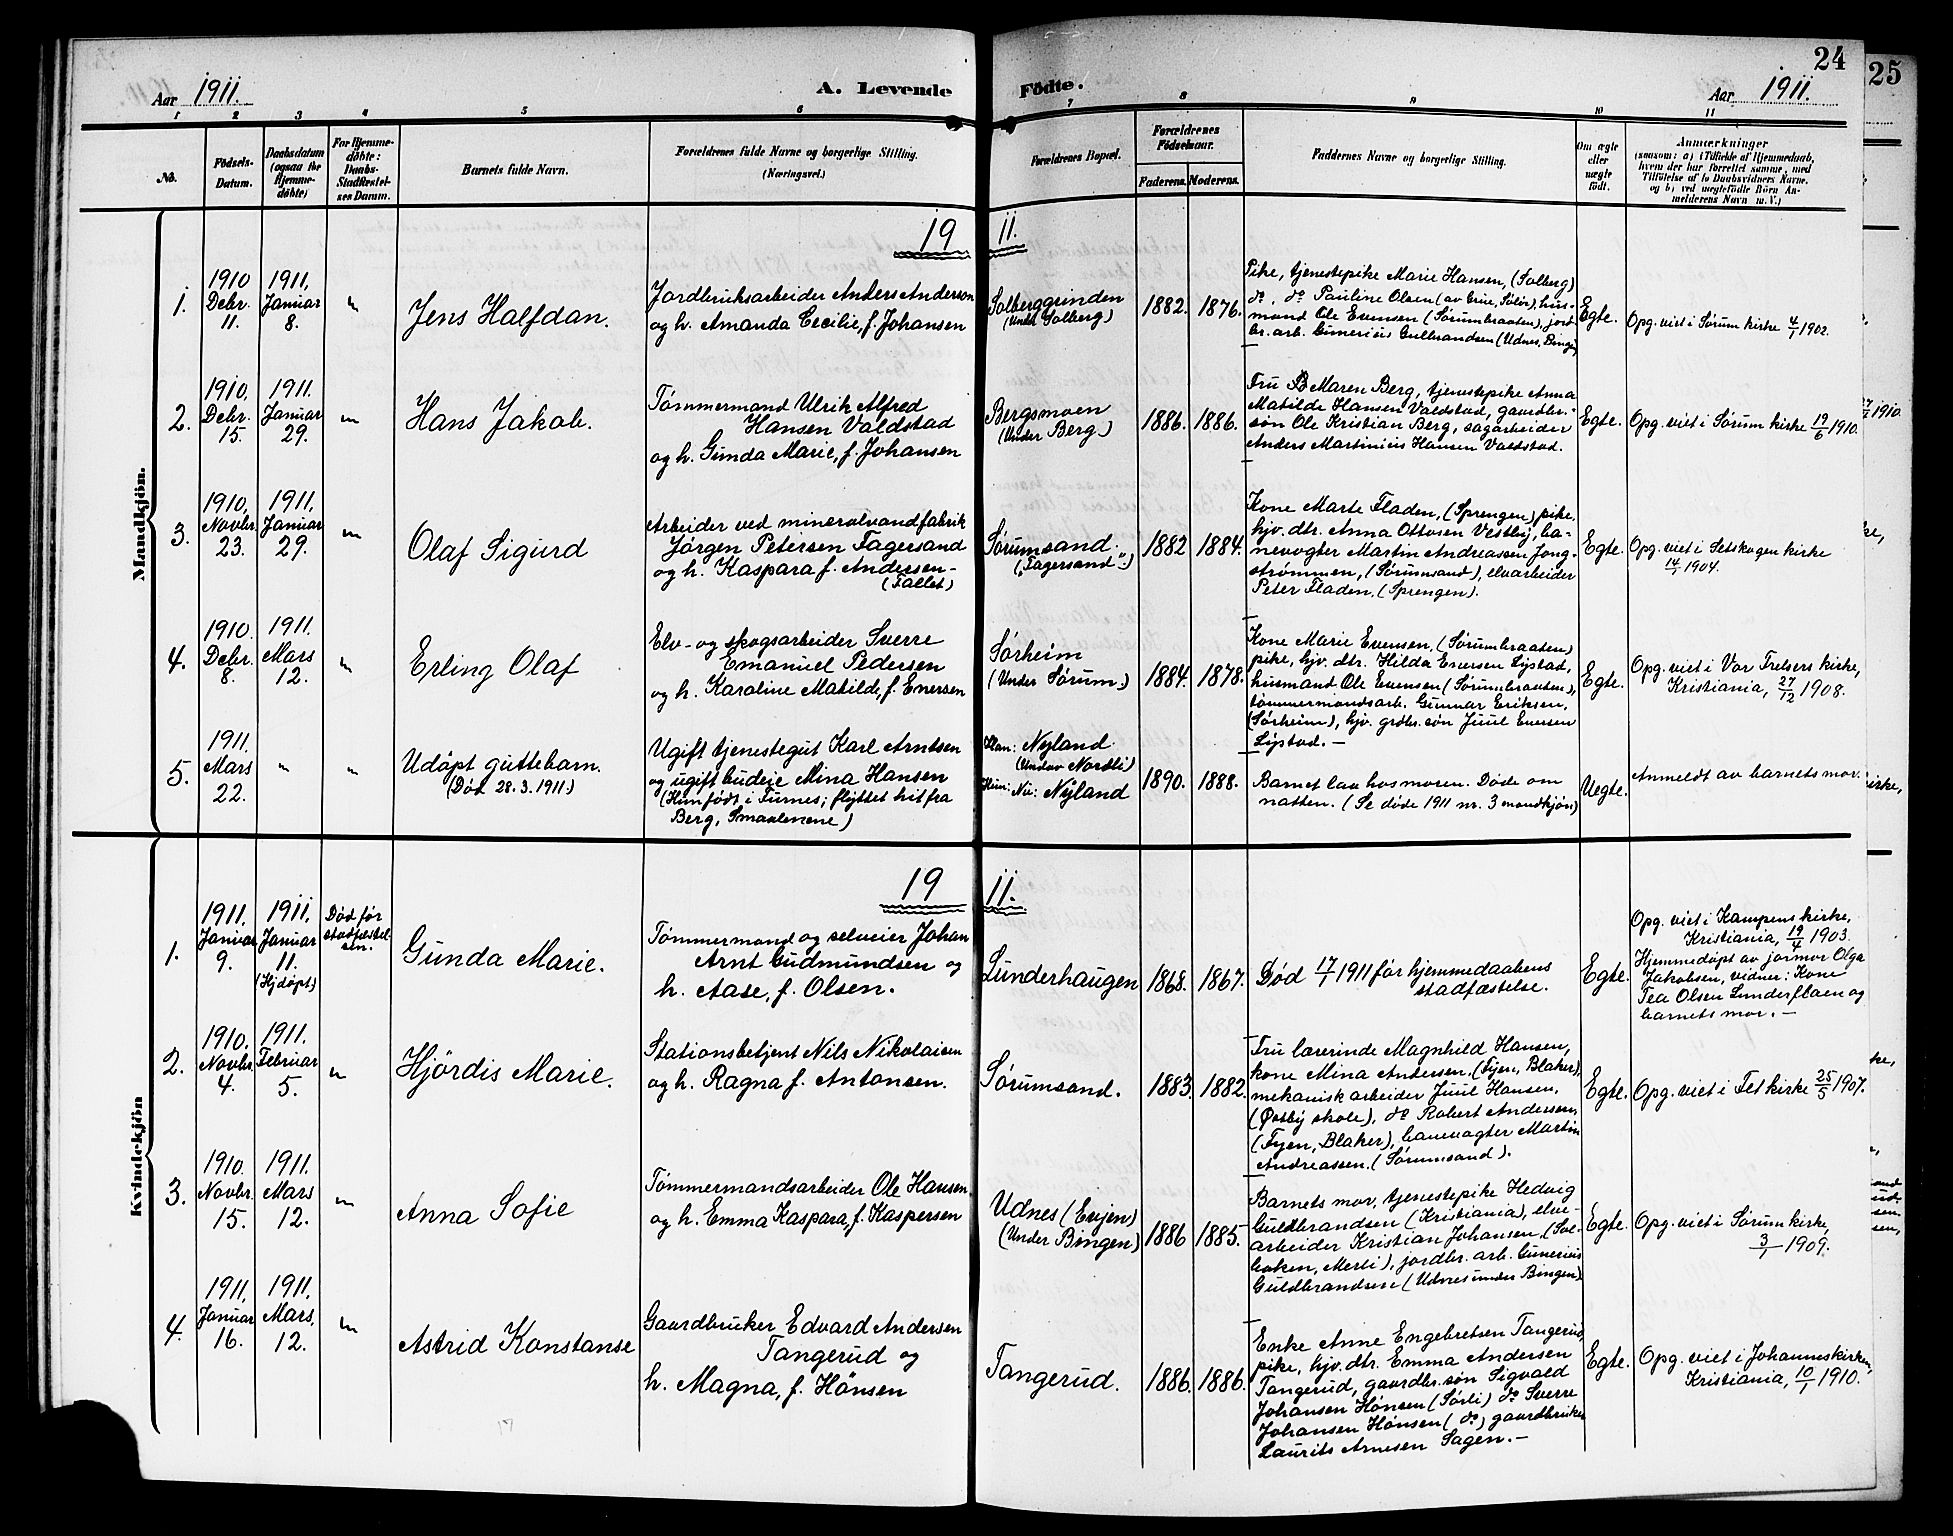 24
25
Aar 1911.
A. Levende Födte.
Aar 1911.
1 2 3 4 5 6 7 8 9 10 11
No.
Födsels-
Datum.
Daabsdatum
(ogsaa for
Hjemme-
döbte)
For Hjemme-
döbte:
Daabs-
Stadfæstel-
ses Datum.
Barnets fulde Navn.
Forældrenes fulde Navne og borgerlige Stilling.
(Næringsvei.)
Forældrenes Bopæl.
Forældrenes
Födselsaar.
Faderens. Moderens.
Faddernes Navne og borgerlige Stilling.
Om ægte
eller
uægte
födt.
Anmærkninger
(saasom: a) i Tilfælde af Hjemmedaab,
hvem der har forrettet samme, med
Tilföielse af to Daabsvidners Navne,
og b) ved uægtefödte Börn An-
melderens Navn m. V.)
Mandkjön.
19 11.
1.
1910
Debr.
11.
1911,
Januar
8.
"
Jens Halfdan.
Jordbruksarbeider Anders Anderson
og h. Amanda Cecilie, f. Johansen
Solberggrinden
(Under Solberg)
1882. 1876.
Pike, tjenestepike Marie Hansen, (Solberg)
do, do Pauline Olsen (av Grue, Solör), hus-
mand Ole Evensen (Sørumbraaten), jord-
br. arb. Gunerius Gulbrandsen (Udnes, Bingen)
Egte.
Opg. viet i Sørum kirke 4/1 1902.
2.
1910.
Debr.
15.
1911.
Januar
29.
"
Hans Jakob.
Tømmermand Ulrik Alfred
Hansen Valdstad
og h. Gunda Marie, f. Johansen
Bergsmoen
(Under Berg.)
1886. 1886.
Fru Maren Berg, tjenestepike Anna
Matilde Hansen Valdstad, gaardbr.-
søn Ole Kristian Berg, sagarbeider
Anders Martinius Hansen Valdstad.
Egte.
Opg. viet i Sørum kirke 19/6 1910.
3.
1910,
Novbr.
23.
1911.
Januar
29.
"
Olaf Sigurd
Arbeider ved mineralvandfabrik
Jørgen Petersen Fagersand
og h. Kaspara f. Andersen-
(Fallet)
Sørumsand.
("Fagersand".)
1882 1884.
Kone Marte Fladen, (Sprengen) pike,
hjv. dtr. Anna Ottosen Vestby, ba-
nevogter Martin Andreassen Jong-
strømmen, (Sørumsand), elvarbeider
Peter Fladen, (Sprengen).
Egte.
Opg. viet i Setskogen kirke
14/1 1904.
4.
1910.
Debr.
8.
1911.
Mars
12.
"
Erling Olaf
Elv- og skogsarbeider Sverre
Emanuel Pedersen
og h. Karoline Matilde, f. Enersen
Sørheim
(Under Sørum.)
1884. 1878.
Kone Marie Evensen, (Sørumbraaten)
pike, hjv. dtr. Hilda Enersen Lystad,
husmand Ole Evensen (Sørumbraaten),
tømmermandsarb. Gunnar Eriksen,
(Sørheim), hjv. grdbr. søn Juul Enersen
Lystad.-
Egte.
Opg. viet i Vor Frelsers kirke,
Kristiania, 27/12 1908.
5.
1911.
Mars
22.
"
"
Udöpt guttebarn.
(Död 28.3.1911.)
Ugift tjenestegut Karl Arntsen
og ugift budeie Mina Hansen
(Hun født i Furnes; flyttet hit fra
Berg, Smaalenene)
Han: Nyland.
(Under Nordli)
Hun: Nyland
1890. 1888.
Barnet laa hos moren. Døde om
natten. (Se døde 1911 nr. 3 mandkjøn)
Uegte.
Anmeldt av barnets mor.
Kvindekjön
19 11.
1.
1911.
Januar
9.
1911.
Januar
11.
(Hjdöpt)
Død før
stadfæstel-
sen.
Gunda Marie.
Tømmermand og selveier Johan
Arnt Gudmundsen og
h. Aase, f. Olsen.
Lunderhaugen
1868. 1867.
Død 17/1 1911 før hjemmedaabens
stadfæstelse.
Egte.
Opg. viet i Kampens kirke,
Kristiania, 19/4 1903.
Hjemmedøpt av jormor Olga
Jakobsen, vidner: Kone
Tea Olsen Lunderflaen og
barnets mor.-
2.
1910.
Novbr.
4.
1911.
Februar
5.
"
Hjördis Marie.
Stationsbetjent Nils Nikolaisen
og h. Ragna f. Antonsen.
Sørumsand.
1883. 1882.
Fru lærerinde Magnhild Hansen,
kone Mina Andersen, (Fjen, Blaker),
mekanisk arbeider Juul Hansen,
(Østby skole), do Robert Andersen,
(Fjen, Blaker), banevogter Martin
Andreassen. (Sørumsand).
Egte.
Opg. viet i Fet kirke 25/5 1907.
3.
1910.
Novbr.
15.
1911.
Mars
12.
"
Anna Sofie
Tømmermandsarbeider Ole Hansen.
og h. Emma Kaspara, f. Kaspersen
Udnes (Evjen)
(Under Bingen.)
1886 1885.
Barnets mor, tjenestepike Hedvig
Guldbrandsen (Kristiania), elve-
arbeider Kristian Johansen, (Sol-
bakken, Merli), jordbr. arb. Gunerius
Guldbrandsen (Udnes under Bingen).
Egte.
Opg. viet i Sørum kirke,
3/1 1909.
4.
1911,
Januar
16.
1911.
Mars,
12.
"
Astrid Konstanse
Gaardbruker Edvard Andersen
Tangerud og
h. Magna, f. Hönsen
Tangerud.
1886. 1886.
Enke Anne Engebretsen Tangerud,
pike, hjv. dtr. Emma Andersen
Tangerud, gaardbr. søn Sigvald
Johansen Hønsen (Sørli) do Sverre
Johansen Hønsen (do) gaardbruker
Laurits Arnesen Sagen.-
Egte.
Opg. viet i Johanneskirken,
Kristiania, 10/1 1910.